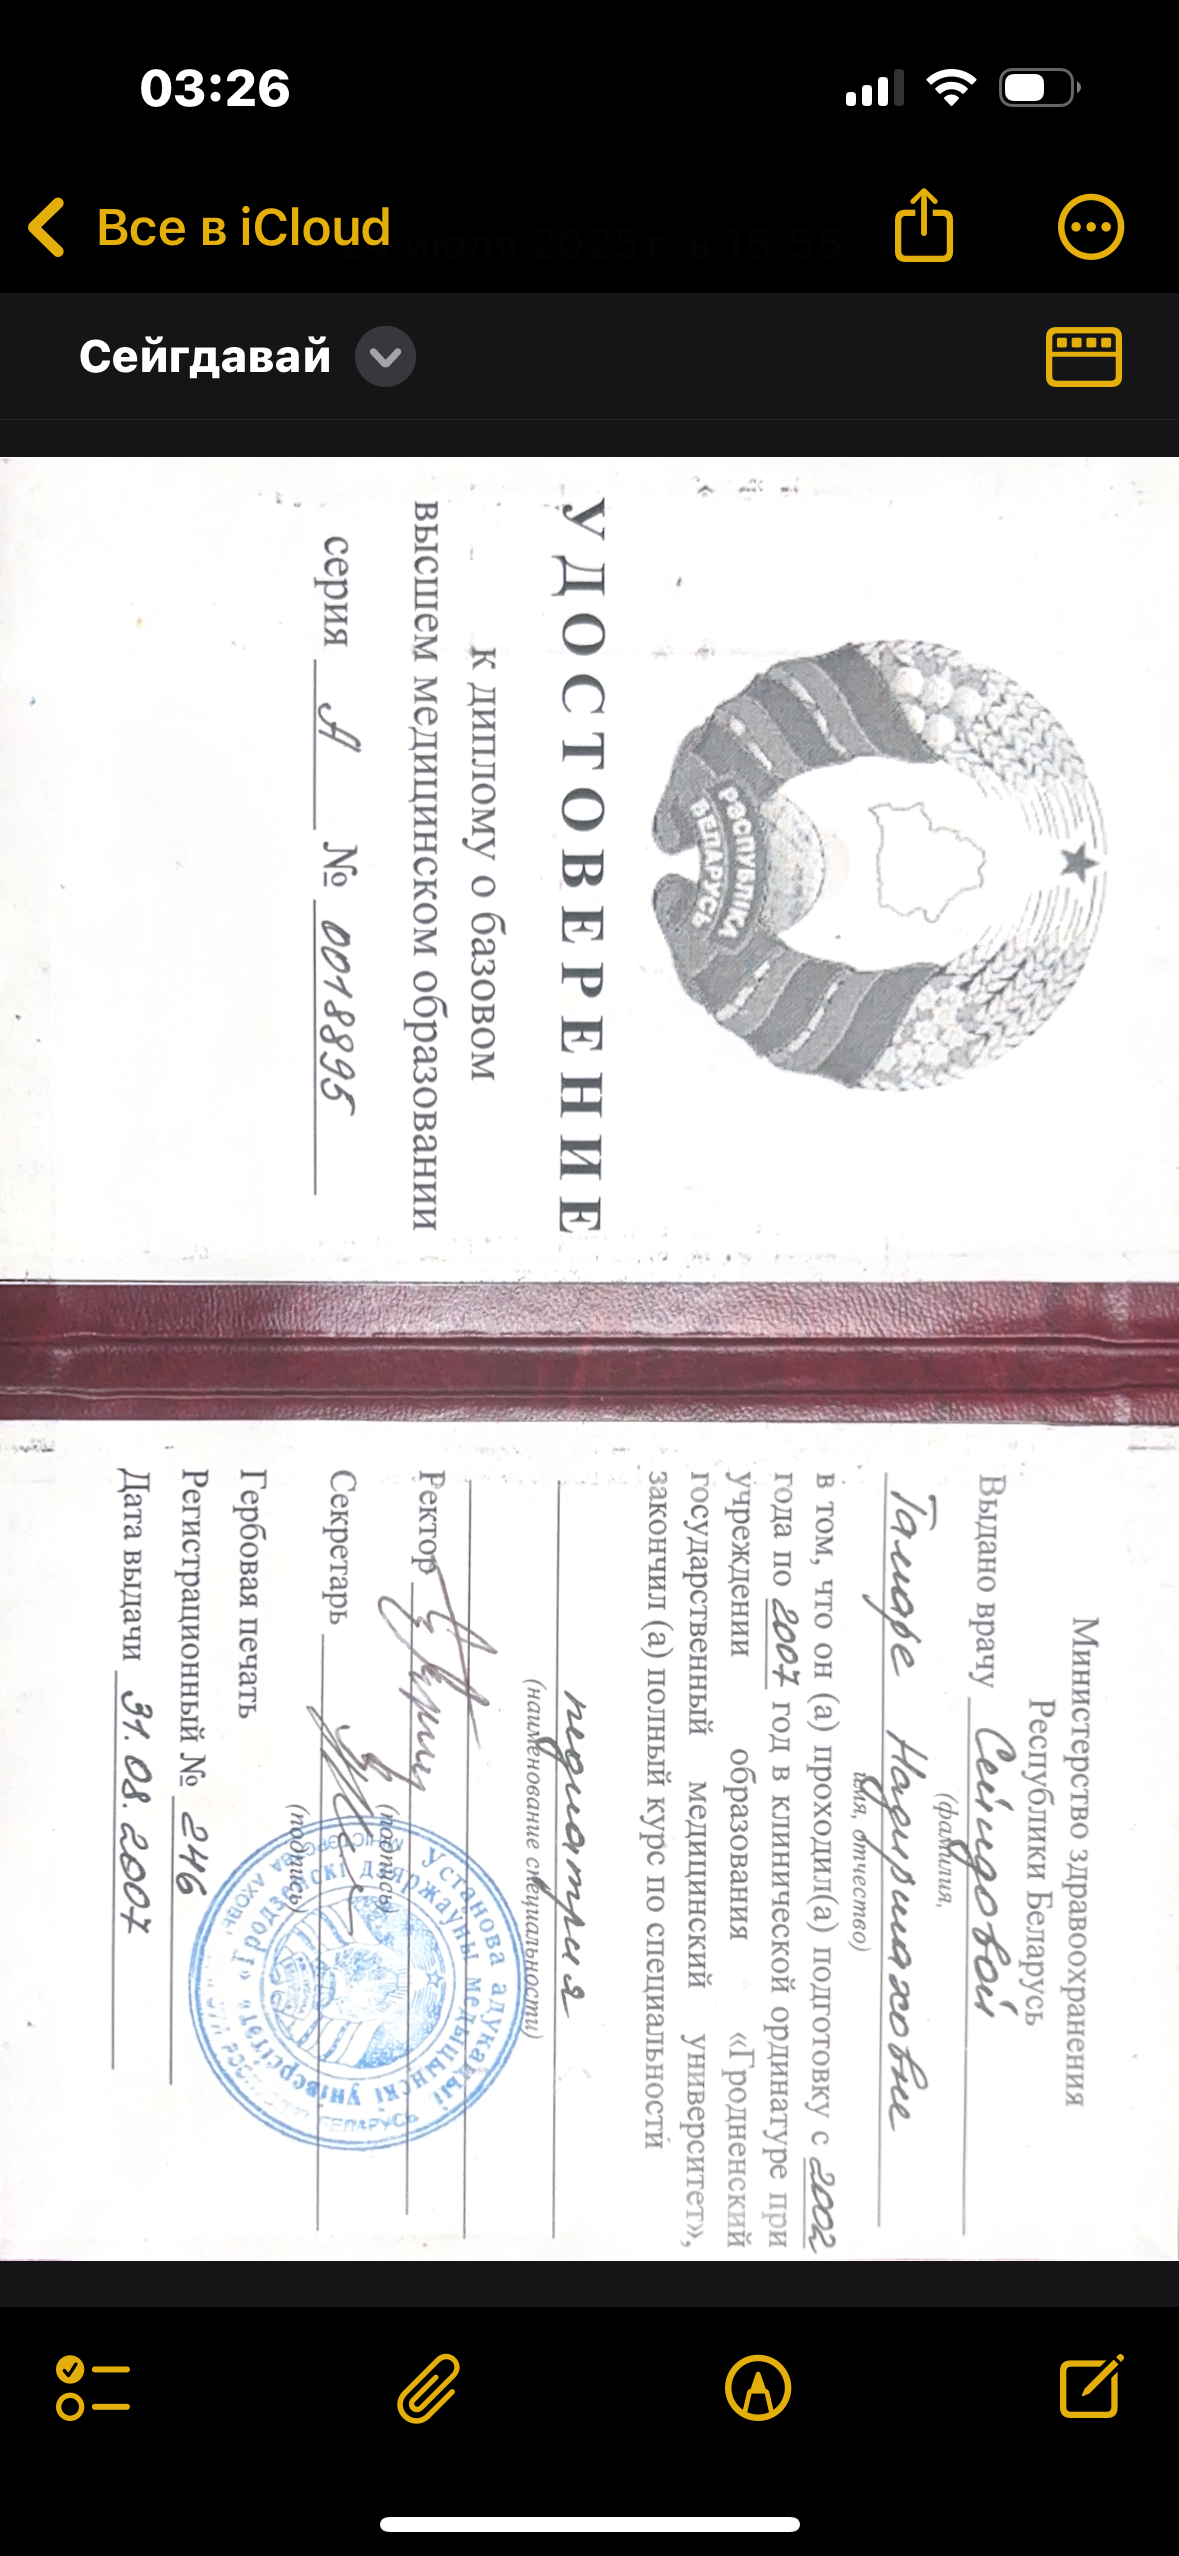 03:26
Все в iCloud
июля 2025 г. в 15:55
Сейгдавай
РЭСПУБЛІКА
БЕЛАРУСЬ
УДОСТОВЕРЕНИЕ
к диплому о базовом
высшем медицинском образовании
серия А № 0018895
Министерство здравоохранения
Республики Беларусь
Выдано врачу Сеингдовой
(фамилия,
Тамаре
имя, отчество)
в том, что он (а) проходил(а) подготовку с 2002
года по 2007 год в клинической ординатуре при
учреждении образования «Гродненский
государственный медицинский университет»,
закончил (а) полный курс по специальности
педиатрия
(наименование специальности)
Ректор
(подпись)
Секретарь
(подпись)
Гербовая печать
Регистрационный № 246
Дата выдачи 31.08.2007
Установа адукацыі
«Гродзенскі дзяржаўны медыцынскі ўніверсітэт»